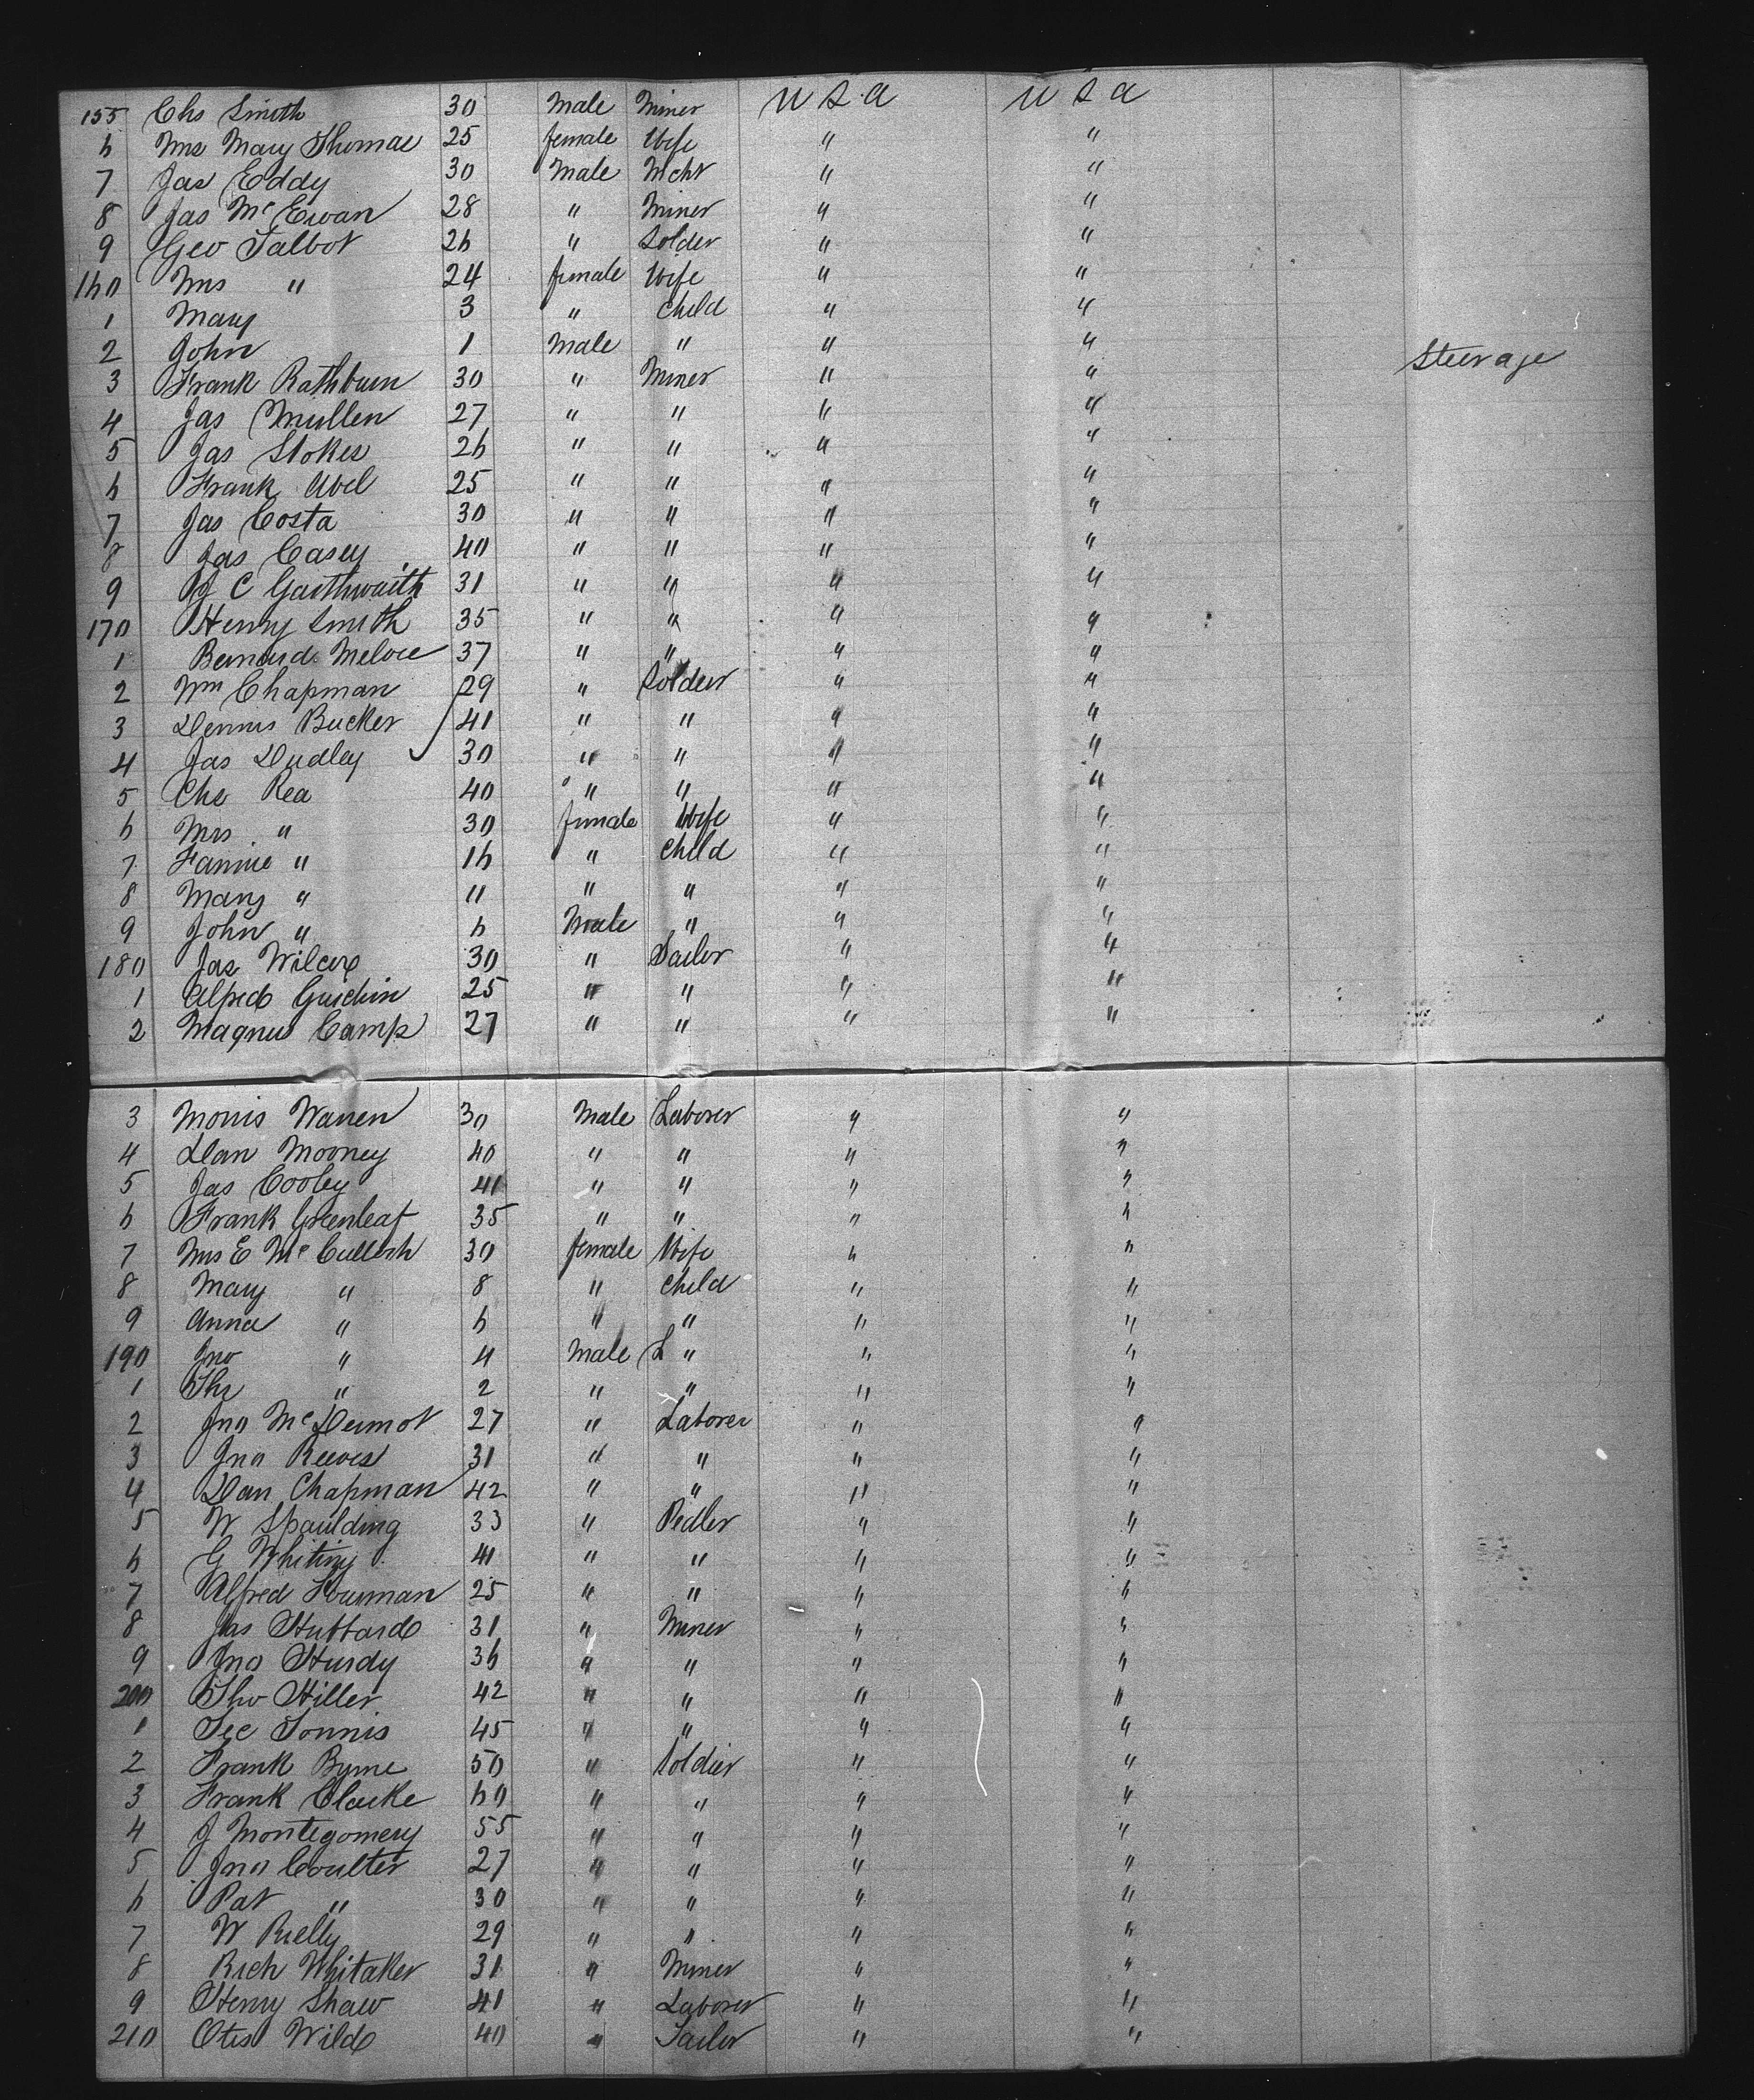 155 Chs Smith 30 Male Miner U S A U S A
6 Mrs Mary Thomas 25 female Wife " "
7 Jas Eddy 30 Male Mcht " "
8 Jas McEwan 28 " Miner " "
9 Geo Talbot 26 " Solder " "
160 Mrs " 24 female Wife " "
1 Mary 3 " Child " "
2 John 1 Male " " " Steerage
3 Frank Rathburn 30 " Miner " "
4 Jas Mullen 27 " " " "
5 Jas Stokes 26 " " " "
6 Frank Abel 25 " " " "
7 Jas Costa 30 " " " "
8 Jas Casey 40 " " " "
9 J C Garthwaith 31 " " " "
170 Henry Smith 35 " " " "
1 Bernard 37 " " " "
2 Wm Chapman 29 " Solder " "
3 Dennis Bucker 41 " " " "
4 Jas Dudley 30 " " " "
5 Chs Rea 40 " " " "
6 Mrs " 30 female Wife " "
7 Fannie " 16 " Child " "
8 Mary " 11 " " " "
9 John " 6 Male " " "
180 Jas Wilcox 30 " Sailor " "
1 Alfred 25 " " " "
2 Magnus Camp 27 " " " "
3 Morris Warren 30 Male Laborer " "
4 Dan Mooney 40 " " " "
5 Jas Cooley 41 " " " "
6 Frank Greenleaf 35 " " " "
7 Mrs E McCulloch 30 female Wife " "
8 Mary " 8 " Child " "
9 Anna " 6 " " " "
190 Jno " 4 Male L " " "
1 Thr " 2 " " " "
2 Jno McDermot 27 " Laborer " "
3 Jno Reeves 31 " " " "
4 Dan Chapman 42 " " " "
5 W Spaulding 33 " Pedler " "
6 G Whiting 41 " " " "
7 Alfred 25 " " " "
8 Jas Hubbard 31 " Miner " "
9 Jno Hurdy 36 " " " "
200 Tho Hiller 42 " " " "
1 Tonnis 45 " " " "
2 Frank Byrne 50 " Soldier " "
3 Frank Clarke 60 " " " "
4 J Montegomery 55 " " " "
5 Jno Coulter 27 " " " "
6 Pat " 30 " " " "
7 W Rielly 29 " " " "
8 Rich Whitaker 31 " Miner " "
9 Henry Shaw 41 " Laborer " "
210 Otis Wild 40 " Sailor " "